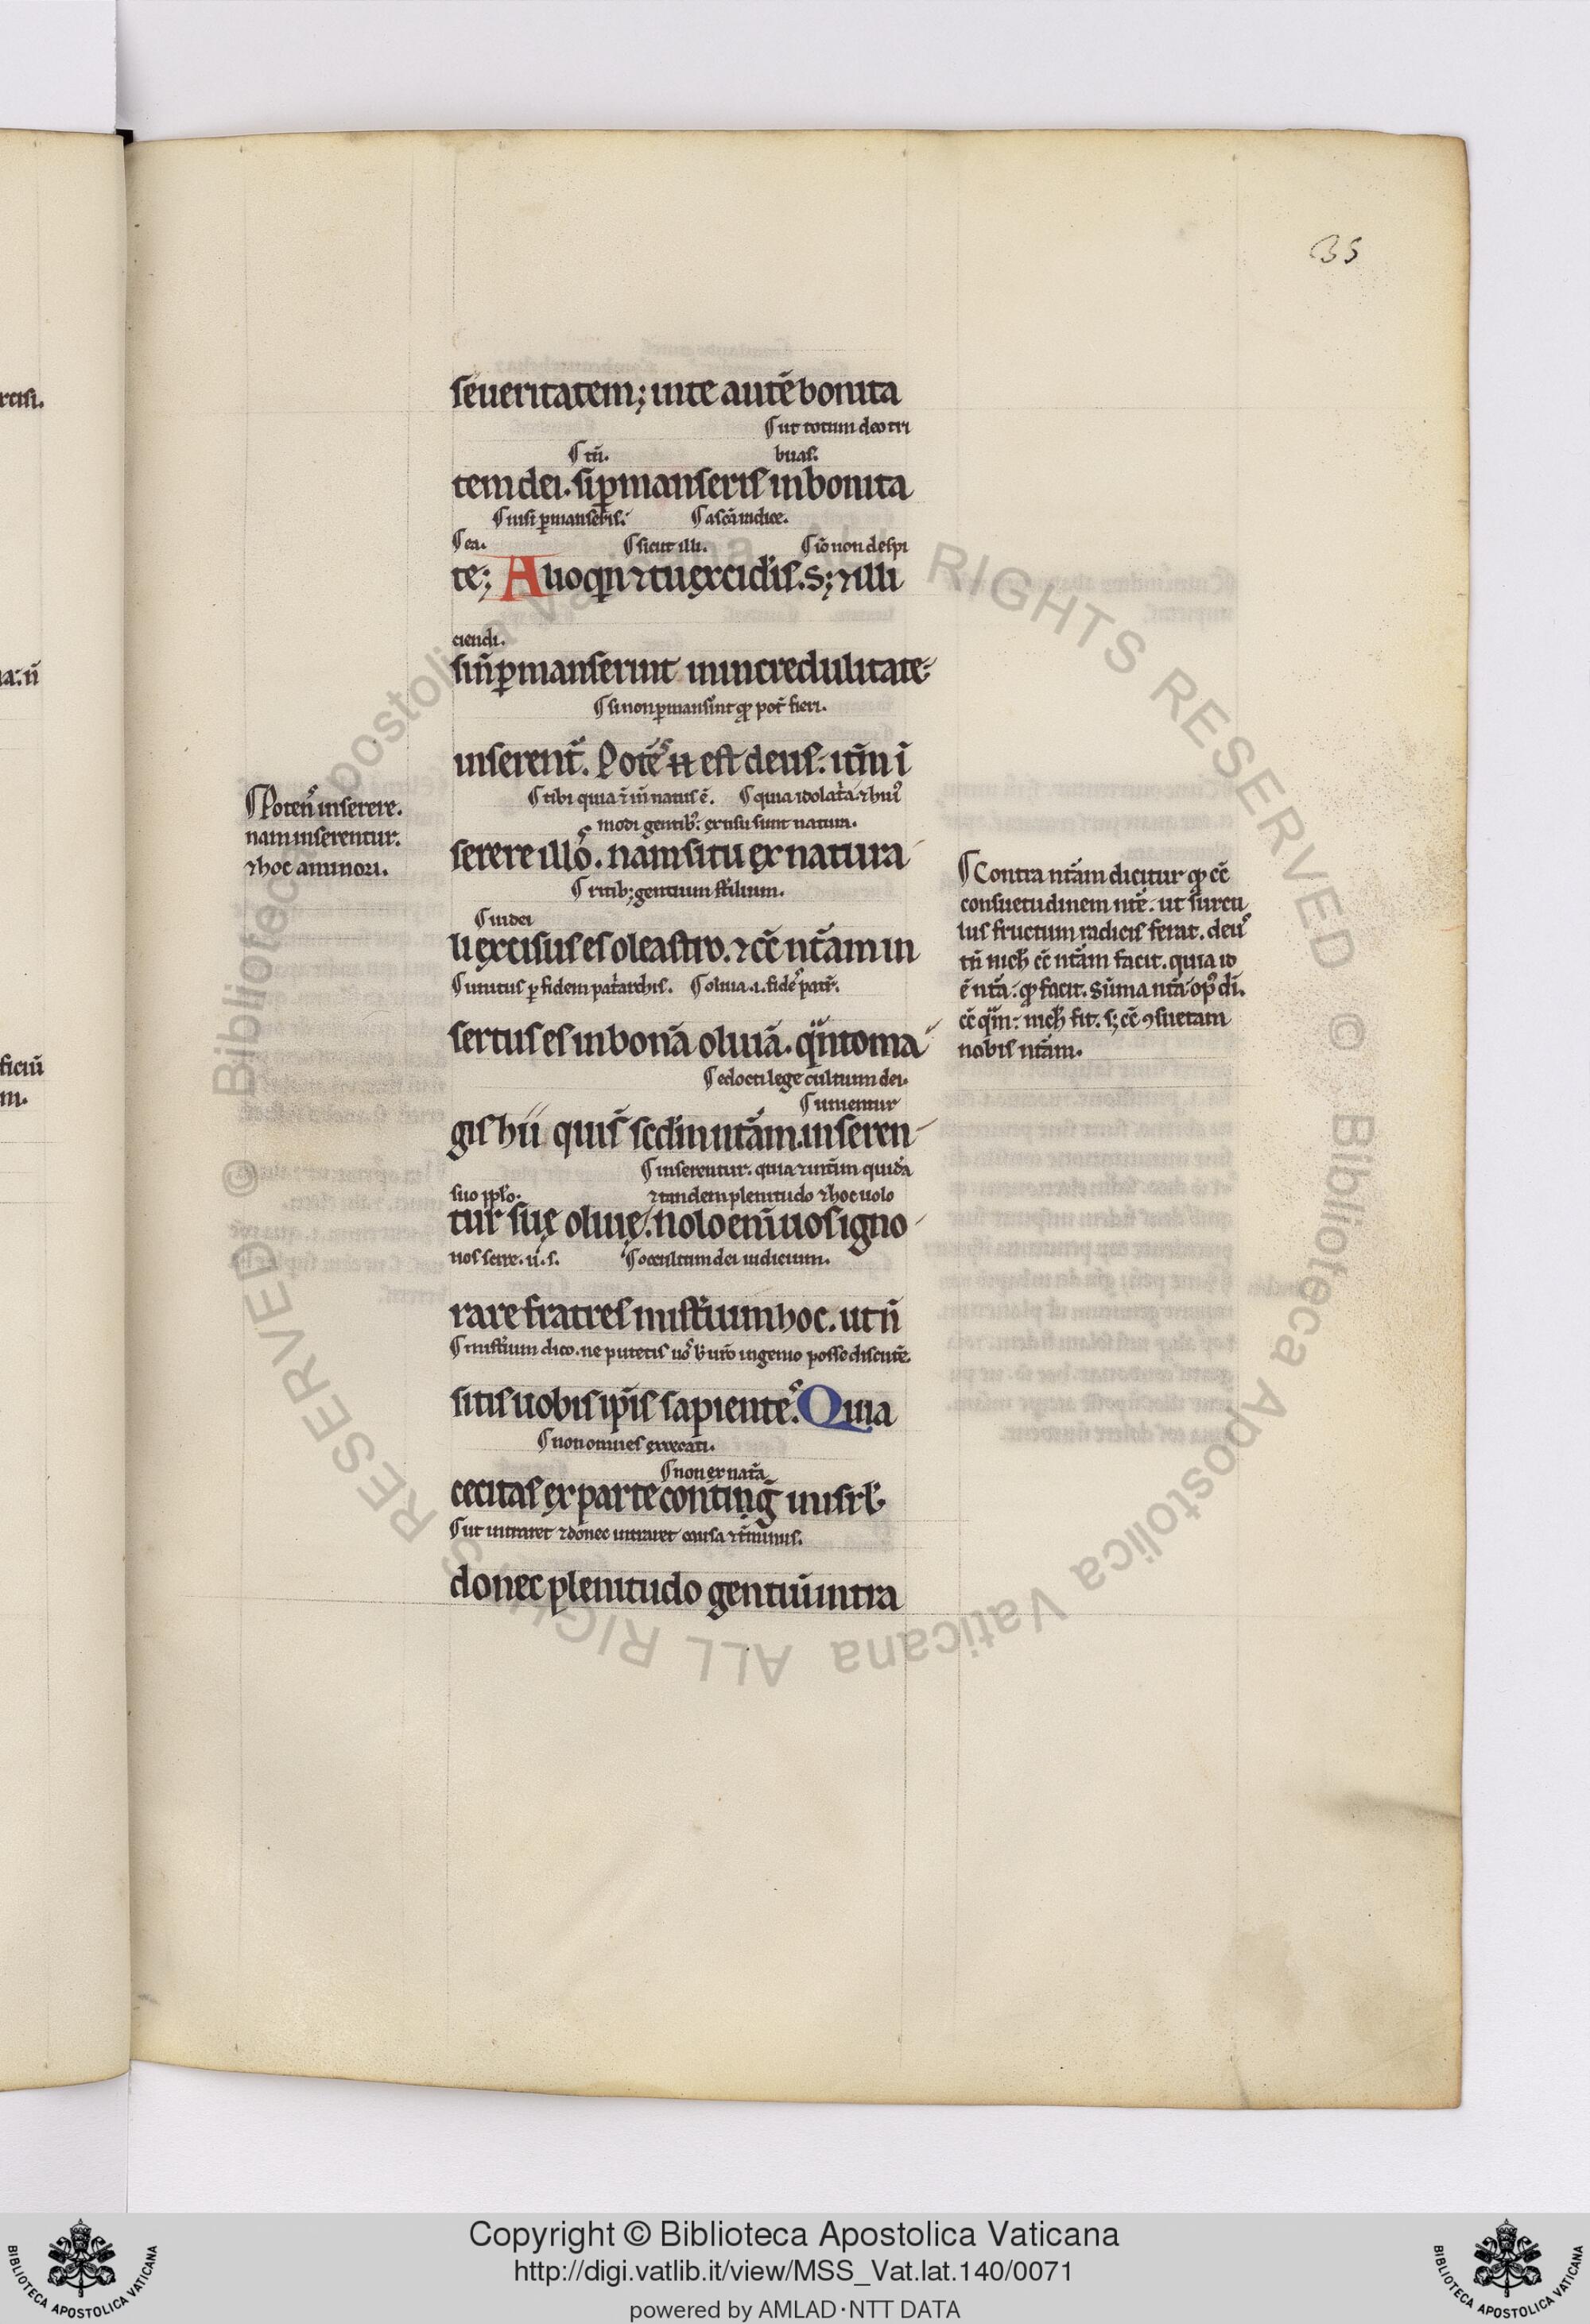 35
seueritatem; in te autē bonita
¶ ut totum deo tri
¶ tñ.
buas.
tem dei. si ꝑmanseris in bonita
¶ nisi ꝑmanseris.
te; Alioqn̄ ⁊ tu excidis. S; ⁊ illi
¶ ea.
¶ sicut illi.
¶ iō non despi
ciendi.
si n̄ ꝑmanserint in incredulitate.
¶ si non ꝑmanserint qđ pot̄ fieri.
inserent᷑. Potēs eī est deus. itm̄ ī
¶ tibi quia
¶ quia idolatria ⁊ hui᷒
modi gentib᷒. ex usu sunt natura.
serere illos. nam si tu ex natura
¶ ritib; gentium
¶ iudei
li excisus es oleastro. ⁊ cͣ nr̄am in
¶ unitus ꝑ fidem patͥarchis.
¶ oliua .i. fidē patr̄.
sertus es in bonā oliuā. qͣnto ma
¶ edocti lege cultum dei.
¶ unientur
gis hii qui s̄ sc̄dm nat̄am. inseren
¶ inserentur. quia
suo ppl̄o.
⁊ tandem plenitudo ⁊ hoc uolo
tur suę oliuę. nolo enī uos igno
uos scire. ū. s.
¶ occultum dei iudicium.
rare fratres mist̄ium hoc. ut n̄
¶ mist̄ium dico. ne putetis uos ingenio posse discut̄e.
sitis uobis ip̄is sapientēs. Quia
¶ non omnes excecati.
¶ non ex nat̄a
cecitas ex parte contingͭ in isrl̄.
¶ ut intraret ⁊ donec intraret causa ⁊ t̄minus.
donec plenitudo gentiū intra
¶ Potens inserere.
nam inserentur.
⁊ hoc a minori.
¶ Contra nat̄am dicitur qđ cͣ
consuetudinem nat̄e. ut surcu
lus fructum radicis ferat. deus
tn̄ nich̄ cͣ nat̄am facit. quia id
ē nat̄a. qđ facit. Sūma nat̄a op᷒ di.
cͣ qͣm. nich̄ fit. s; cͣ ꝯsuetam
nobis nat̄am.
rcisi.
ficiū
m.
Copyright © Biblioteca Apostolica Vaticana
http://digi.vatlib.it/view/MSS_Vat.lat.140/0071
powered by AMLAD·NTT DATA
BIBLIOTECA APOSTOLICA VATICANA
BIBLIOTECA APOSTOLICA VATICANA
© Biblioteca Apostolica Vaticana ALL RIGHTS RESERVED
© Biblioteca Apostolica Vaticana ALL RIGHTS RESERVED